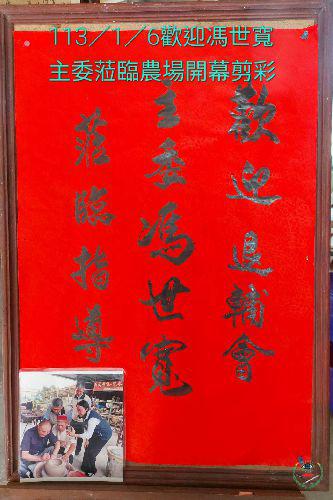 113/1/6歡迎馮世寬
主委蒞臨農場開幕剪彩
歡迎退輔會
主委馮世寬
蒞臨指導